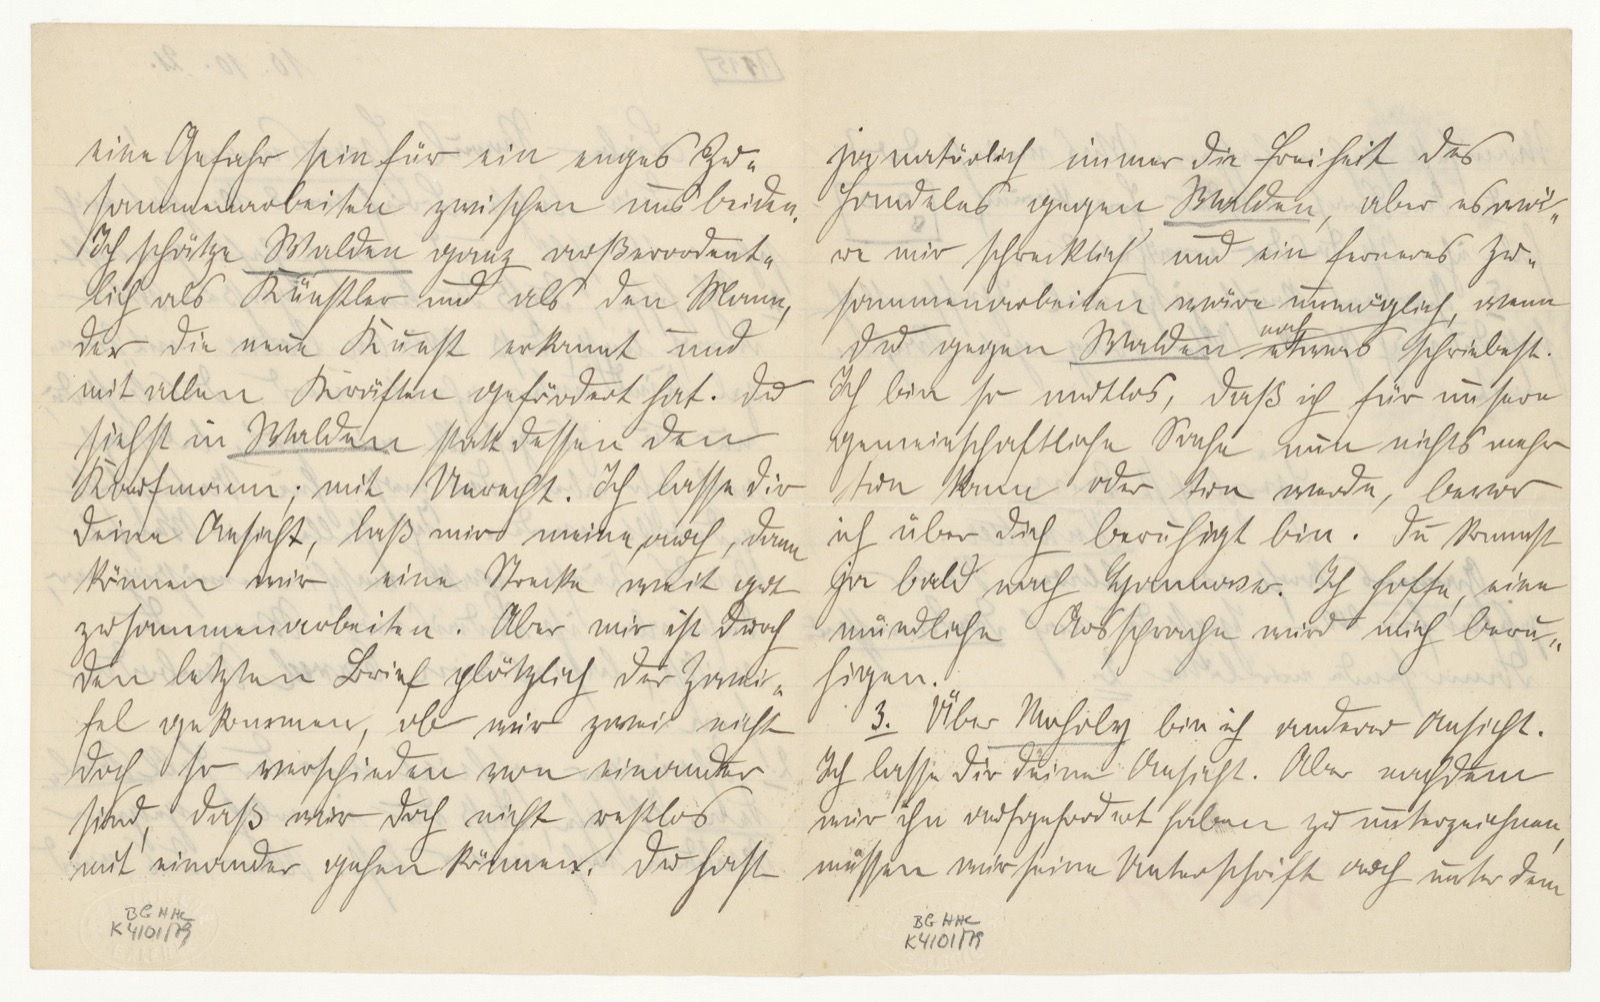 eine Gefahr sein für ein enges Zu-
sammenarbeiten zwischen uns beiden.
Ich schätze Walden ganz außerordent-
lich als Künstler und als den Mann,
der die neue Kunst erkannt und
mit allen Kräften gefördert hat. Du
siehst in Walden statt dessen den
Kaufmann; mit Unrecht. Ich lasse dir
deine Ansicht, laß mir meine auch, dann
können wir eine Strecke weit gut
zusammenarbeiten. Aber mir ist durch
den letzten Brief plötzlich der Zwei-
fel gekommen, ob wir zwei nicht
doch so verschieden von einander
sind, daß wir doch nicht restlos
mit einander gehen können. Du hast
BG HHC
K 4101/79
ja natürlich immer die Freiheit des
Handelns gegen Walden, aber es wä-
re mir schrecklich und ein ferneres Zu-
sammenarbeiten wäre unmöglich, wenn
Du gegen Walden noch etwas schriebest.
Ich bin so mutlos, daß ich für unsere
gemeinschaftliche Sache nun nichts mehr
tun kann oder tun werde, bevor
ich über dich beruhigt bin. Du kommst
ja bald nach Hannover. Ich hoffe, eine
mündliche Aussprache wird mich beru-
higen.
3. Über Moholy bin ich anderer Ansicht.
Ich lasse dir deine Ansicht. Aber nachdem
wir ihn aufgefordert haben zu unterzeichnen,
müssen wir seine Unterschrift auch unter dem
BG HHC
K 4101/79